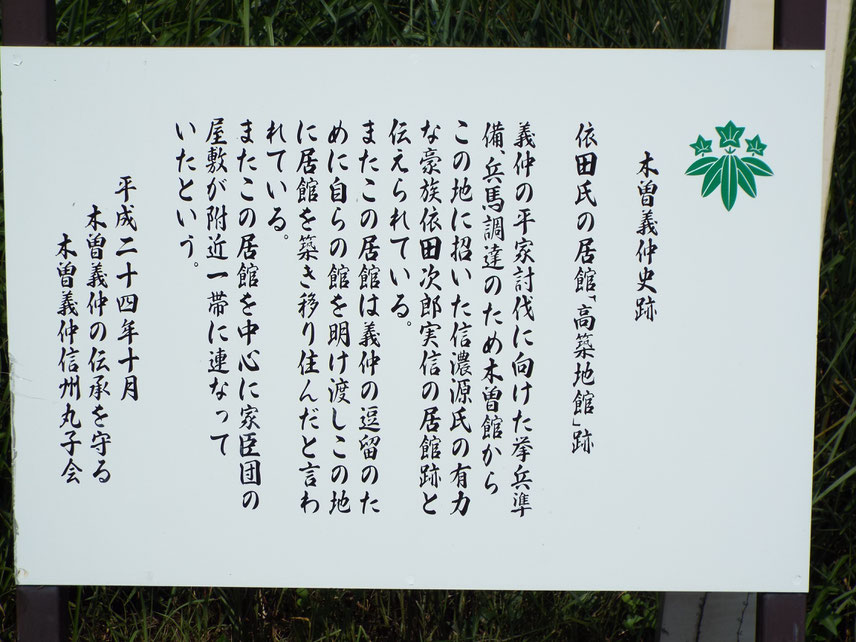 木曽義仲史跡
依田氏の居館「高築地館」跡
義仲の平家討伐に向けた挙兵準
備、兵馬調達のため木曽館から
この地に招いた信濃源氏の有力
な豪族依田次郎実信の居館跡と
伝えられている。
またこの居館は義仲の逗留のた
めに自らの館を明け渡しこの地
に居館を築き移り住んだと言わ
れている。
またこの居館を中心に家臣団の
屋敷が附近一帯に連なって
いたという。
平成二十四年十月
木曽義仲の伝承を守る
木曽義仲信州丸子会